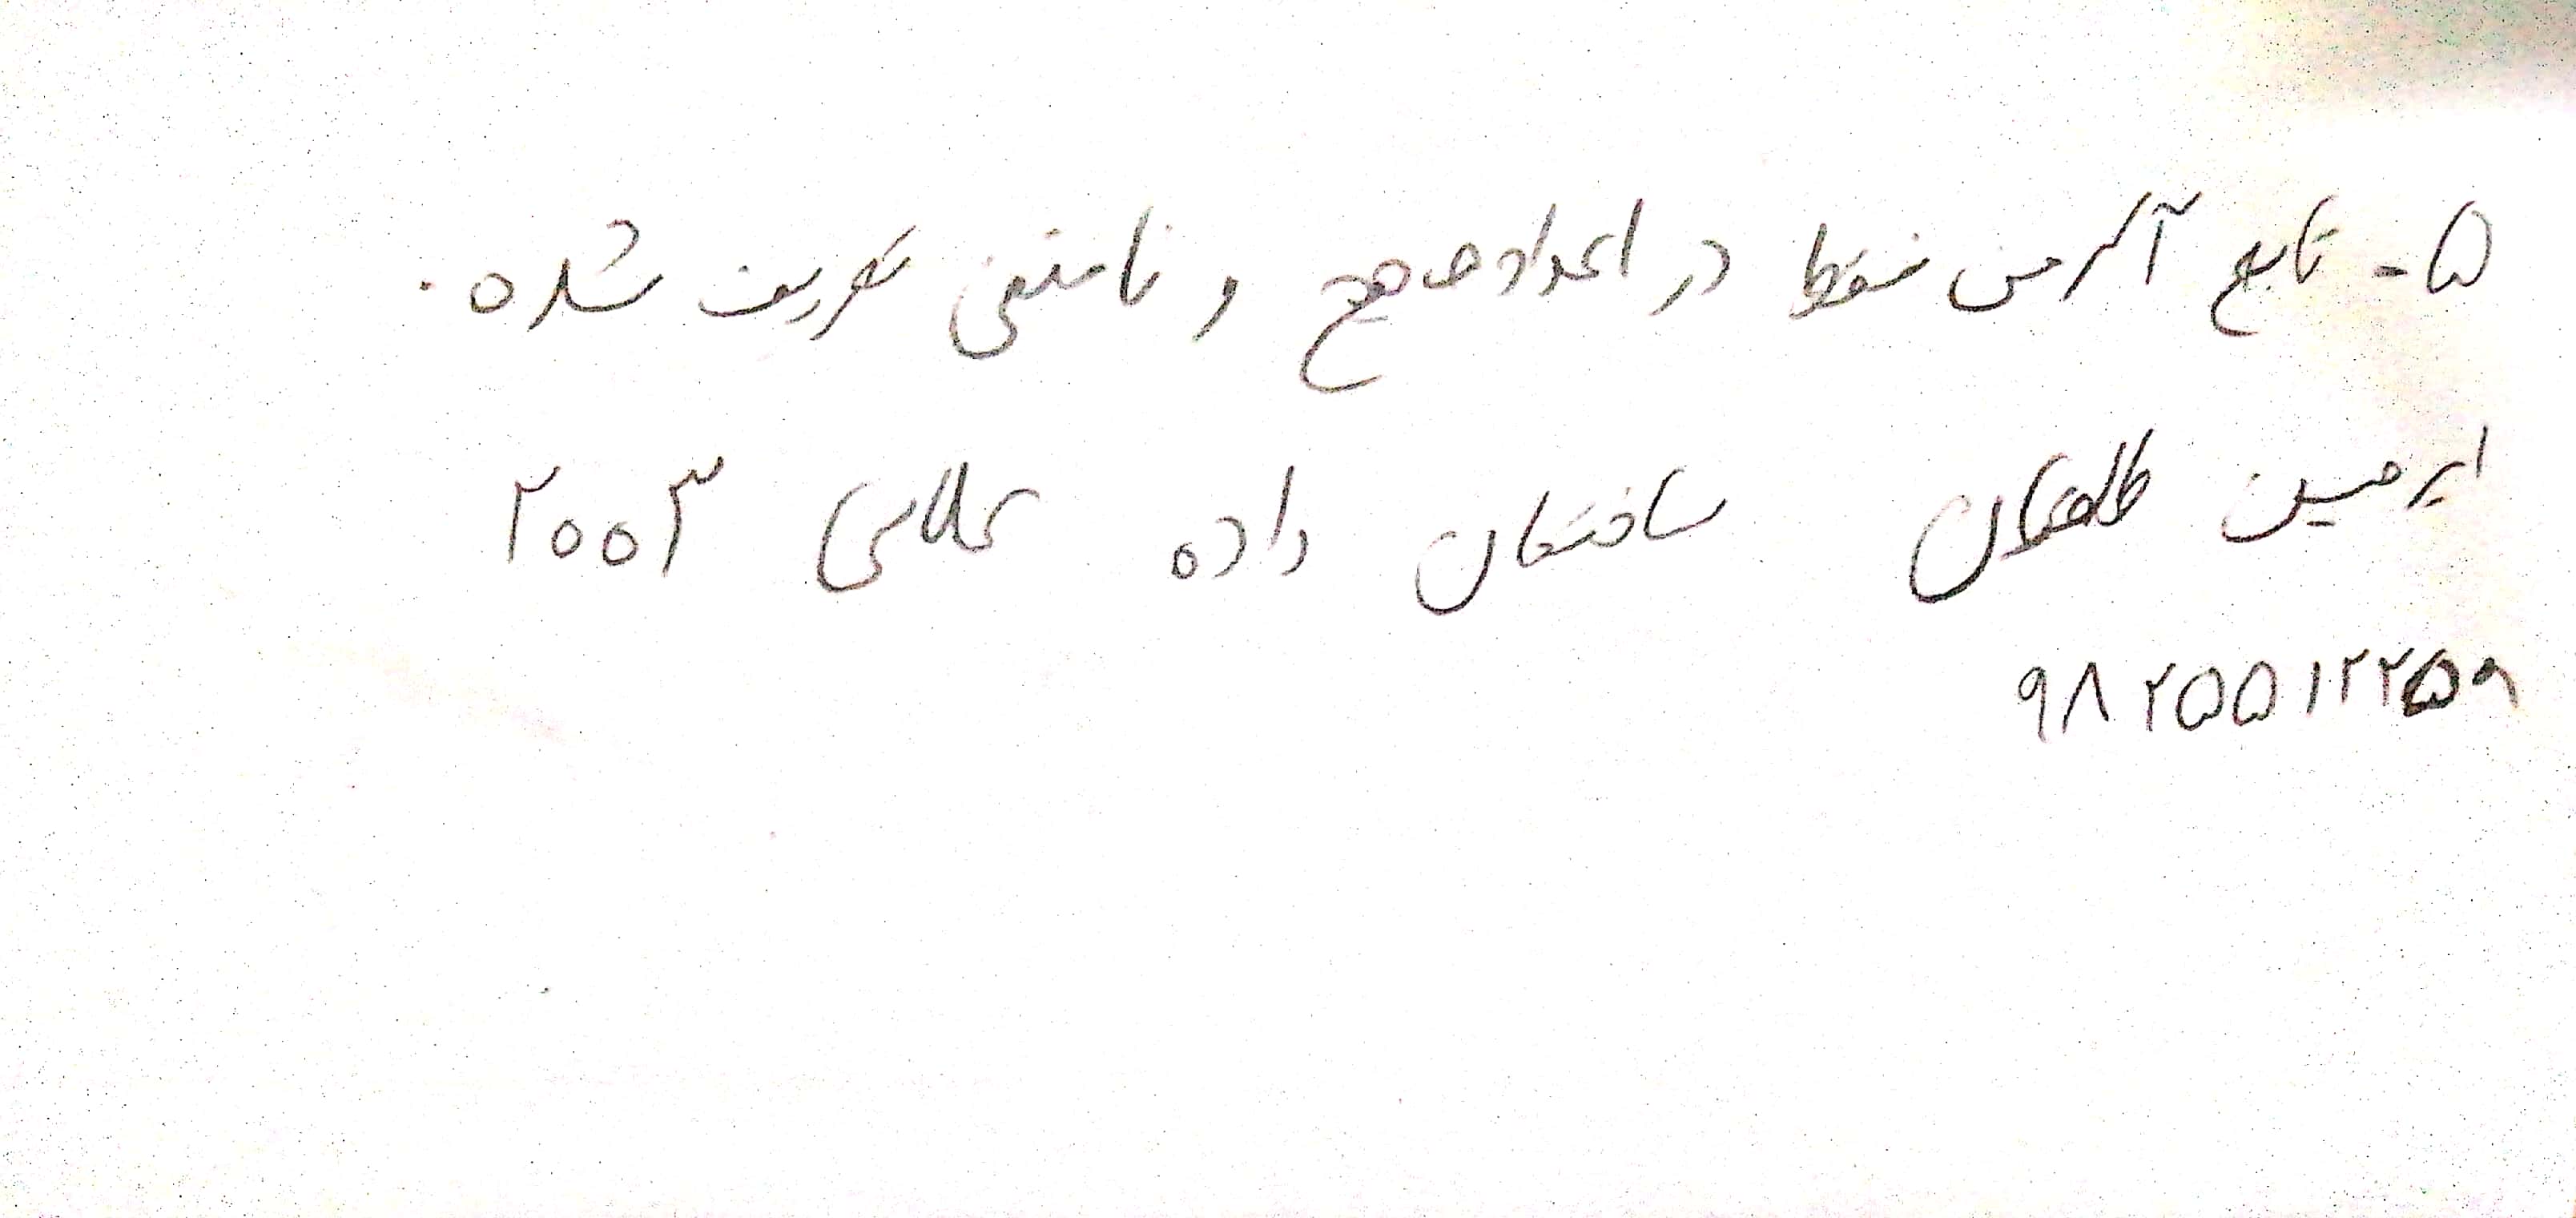 ۵- تابع آکرمن فقط در اعداد صحیح و نامنفی تعریف شده.
ایرمین ساختمان داده کلاس ۲۰۰۳
۹۸۲۵۵۱۲۲۵۹